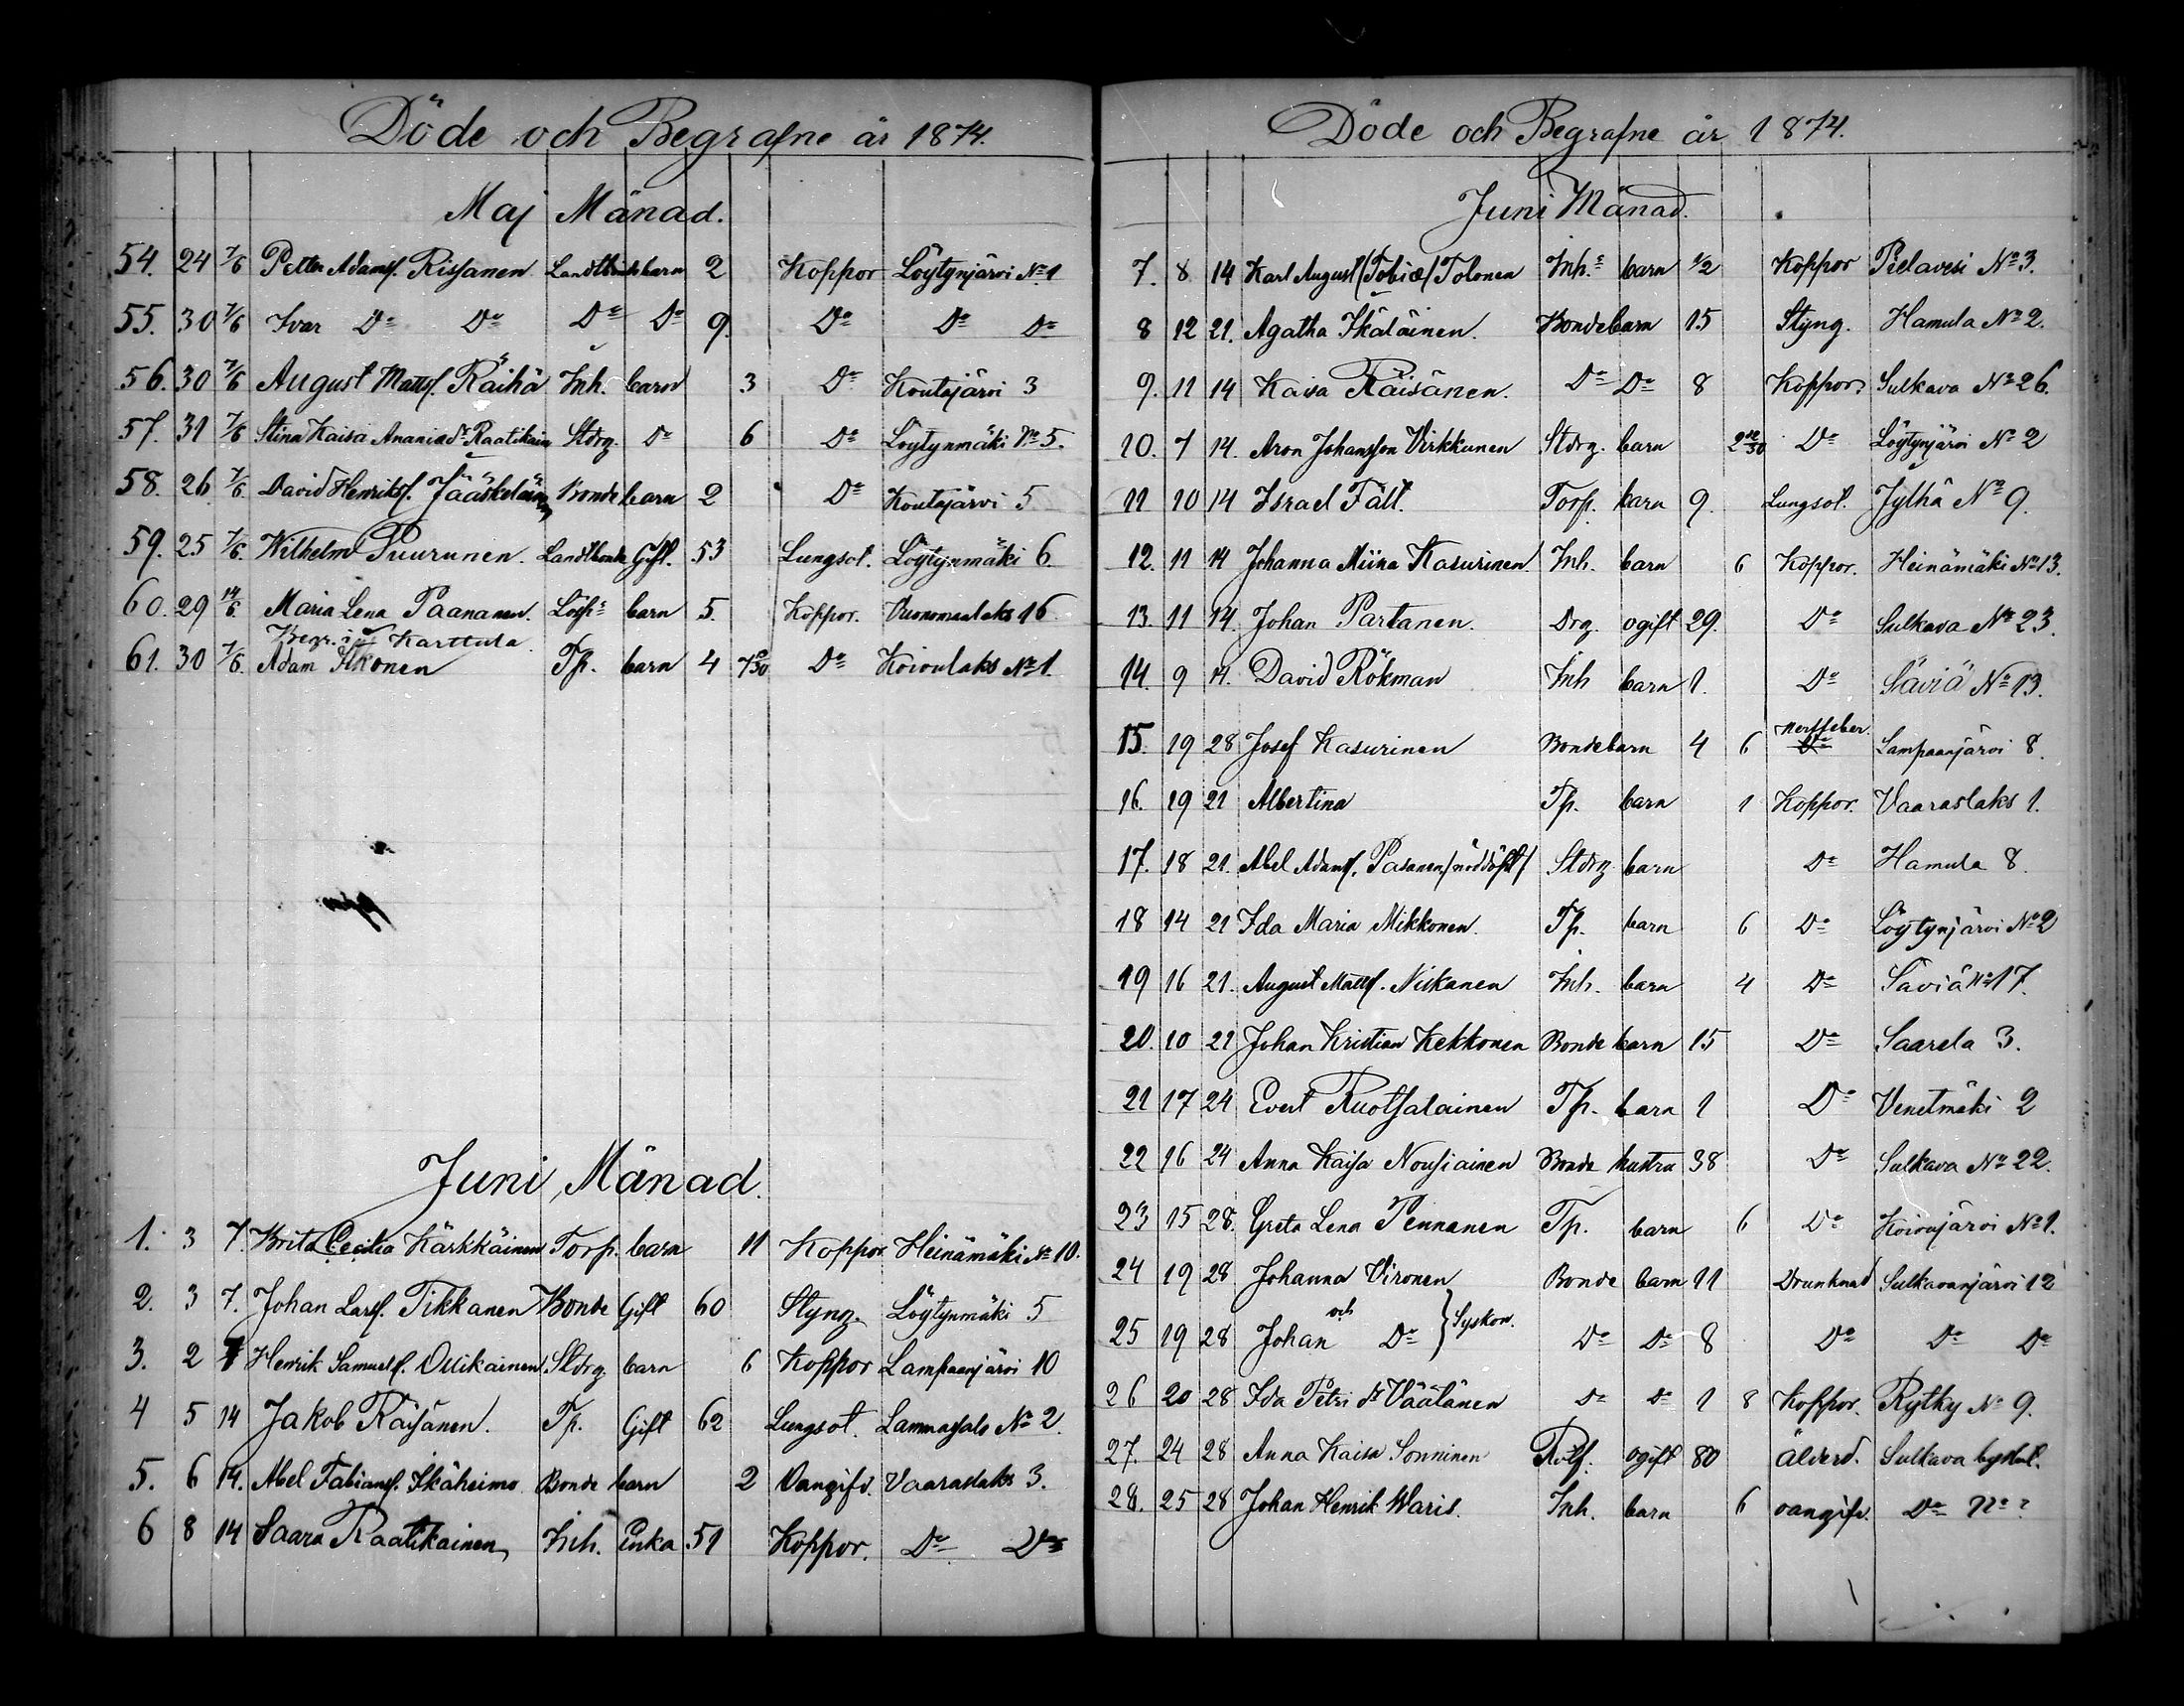 Döde och Begrafne år 1874.
Maj Månad.
54. 24 7/6 Petter Adamss. Rissanen Landtbondebarn 2 Koppor Löytynjärvi No 1
55. 30 7/6 Ivar Do Do Do Do 9. Do Do Do
56. 30 7/6 August Mattss. Räihä Inh. barn 3 Do Koutajärvi 3
57. 31 7/6 Stina Kaisa Ananiadr Raatikain Stdrg. Do 6 Do Löytynmäki No 5.
58. 26 7/6 David Henrikss. Jääskeläinen Bonde barn 2 Do Koutajärvi 5
59. 25 7/6. Wilhelm Puurunen. Landtbonde Gift. 53 Lungsot. Löytynmäki 6.
60. 29 14/6 Maria Lena Paananen. Lösp:s barn 5. Koppor. Vuonomanlaks 16
Begr. i Karttula.
61. 30 7/6. Adam Ikonen Tp. barn 4 7 Do Koivulaks No 1.
Juni Månad.
1. 3 7. Brita Cecilia Kärkkäinen Torp. barn 11 Koppor Heinämäki No 10.
2. 3 7. Johan Larss. Tikkanen Bonde Gift 60 Styng. Löytynmäki 5
3. 2 7 Henrik Samuelss. Ollikainen. Stdrg. barn 6 Koppor Lampaanjärvi 10
4 5 14 Jakob Räisänen. Tp. Gift 62 Lungsot. Lammassalo No 2.
5. 6 14. Abel Fabianss. Ikäheimo Bonde barn 2 Oangifv. Vaaraslaks 3.
6 8 14 Saara Raatikainen, Inh. Enka 51 Koppor. Do Do
Döde och Begrafne år 1874.
Juni Månad.
7. 8 14 Karl August (Tobiæ) Tolonen Inh:s barn 1/2 Koppor Pielavesi No 3.
8 12 21. Agatha Ikäläinen. Bondebarn 15 Styng. Hamula No 2.
9. 11 14 Kaisa Räisänen. Do Do 8 Koppor Sulkava No 26.
10. 7 14. Aron Johansson Virkkunen Stdrg. barn 2 Do Löytynjärvi No 2
11 10 14 Israel Fält. Torp. barn 9. Lungsot. Jylhä No 9.
12. 11 14 Johanna Miina Kasurinen. Inh. barn 6 Koppor. Heinämäki No 13.
13. 11 14. Johan Partanen. Drg. ogift 29. Do Sulkava No 23.
14. 9 14. David Rökman Inh barn 1. Do Säviä No 13.
15. 19 28 Josef Kasurinen Bondebarn 4 6 Nerffeber Do Lampaanjärvi 8.
16. 19 21 Albertina Tp. barn 1 Koppor. Vaaraslaks 1.
17. 18 21. Abel Adamss. Pasanen /nöddöpt/ Stdrg barn Do Hamula 8.
18 14 21 Ida Maria Mikkonen. Tp. barn 6 Do Löytynjärvi No 2
19 16 21. August Mattss. Niskanen Inh. barn 4 Do Säviä No 17.
20. 10 21 Johan Kristian Kekkonen Bonde barn 15 Do Saarela 3.
21 17 24 Evert Ruotsalainen Tp. barn 1 Do Venetmäki 2
22 16 24 Anna Kaisa Nousiainen Bonde hustru 38 Do Sulkava No 22.
23 15 28. Greta Lena Pennanen Tp. barn 6 Do Koivujärvi No 1.
24 19 28 Johanna Vironen Bonde barn 11 Drunknad Sulkavanjärvi 12
och } Syskon.
25 19 28 Johan Do Do Do 8 Do Do Do
26 20 28 Ida Petri dr Väätänen Do Do 1 8 Koppor. Rytky No 9.
27. 24 28 Anna Kaisa Sonninen Rotf. ogift 80 ålderd. Sulkava
28. 25 28 Johan Henrik Waris. Inh. barn 6 oangifv. Do No ?